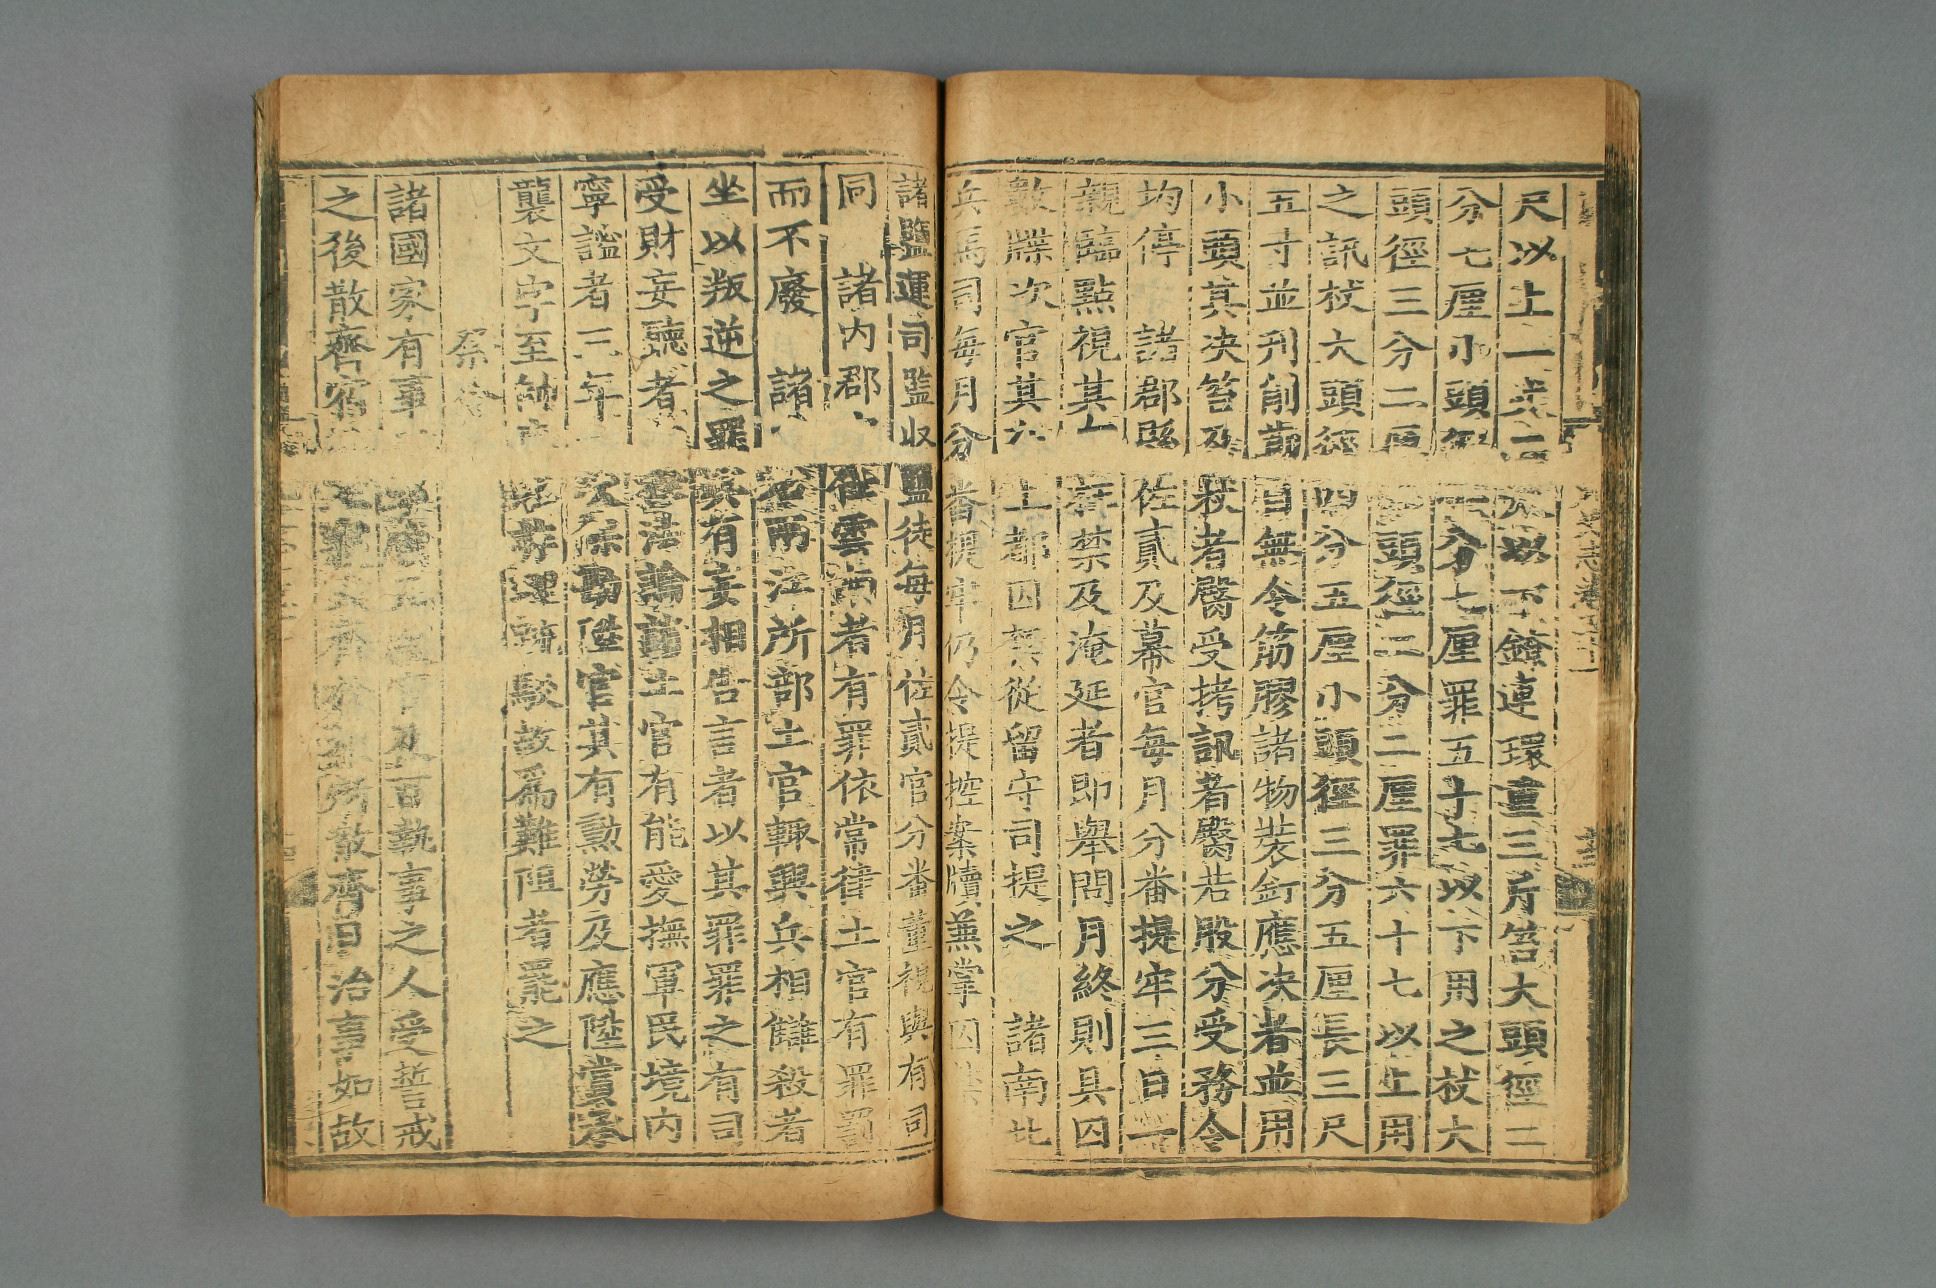 尺以上一丈以下鐐連環重三斤笞大頭徑二
分七厘小頭徑一分七厘罪五十七以下用之杖大
頭徑三分二厘小頭徑二分二厘罪六十七以上用
之訊杖大頭徑四分五厘小頭徑三分五厘長三尺
五寸並刊削節目無令筋膠諸物裝釘應决者並用
小頭其决笞及杖者臀受拷訊者臀若股分受務令
均停 諸郡縣佐貳及幕官每月分番提牢三日一
親臨點視其有枉禁及淹延者即舉問月終則具囚
數牒次官其在上都囚禁從留守司提之 諸南北
兵馬司每月分番提牢仍令提控案牘兼掌囚禁
諸鹽運司監收鹽徒每月佐貳官分番董視與有司
同 諸內郡官仕雲南者有罪依常律土官有罪罰
而不廢 諸左右兩江所部土官輒興兵相讎殺者
坐以叛逆之罪其有妄相告言者以其罪罪之有司
受財妄聽者以枉法論諸土官有能愛撫軍民境內
寧謐者三年一次保勘陞官其有勳勞及應陞賞承
襲文字至帥府輒非理疏駁故爲難阻者罷之
祭令
諸國家有事於郊廟凡獻官及百執事之人受誓戒
之後散齊宿於正寢致齊於祀所散齊日治事如故